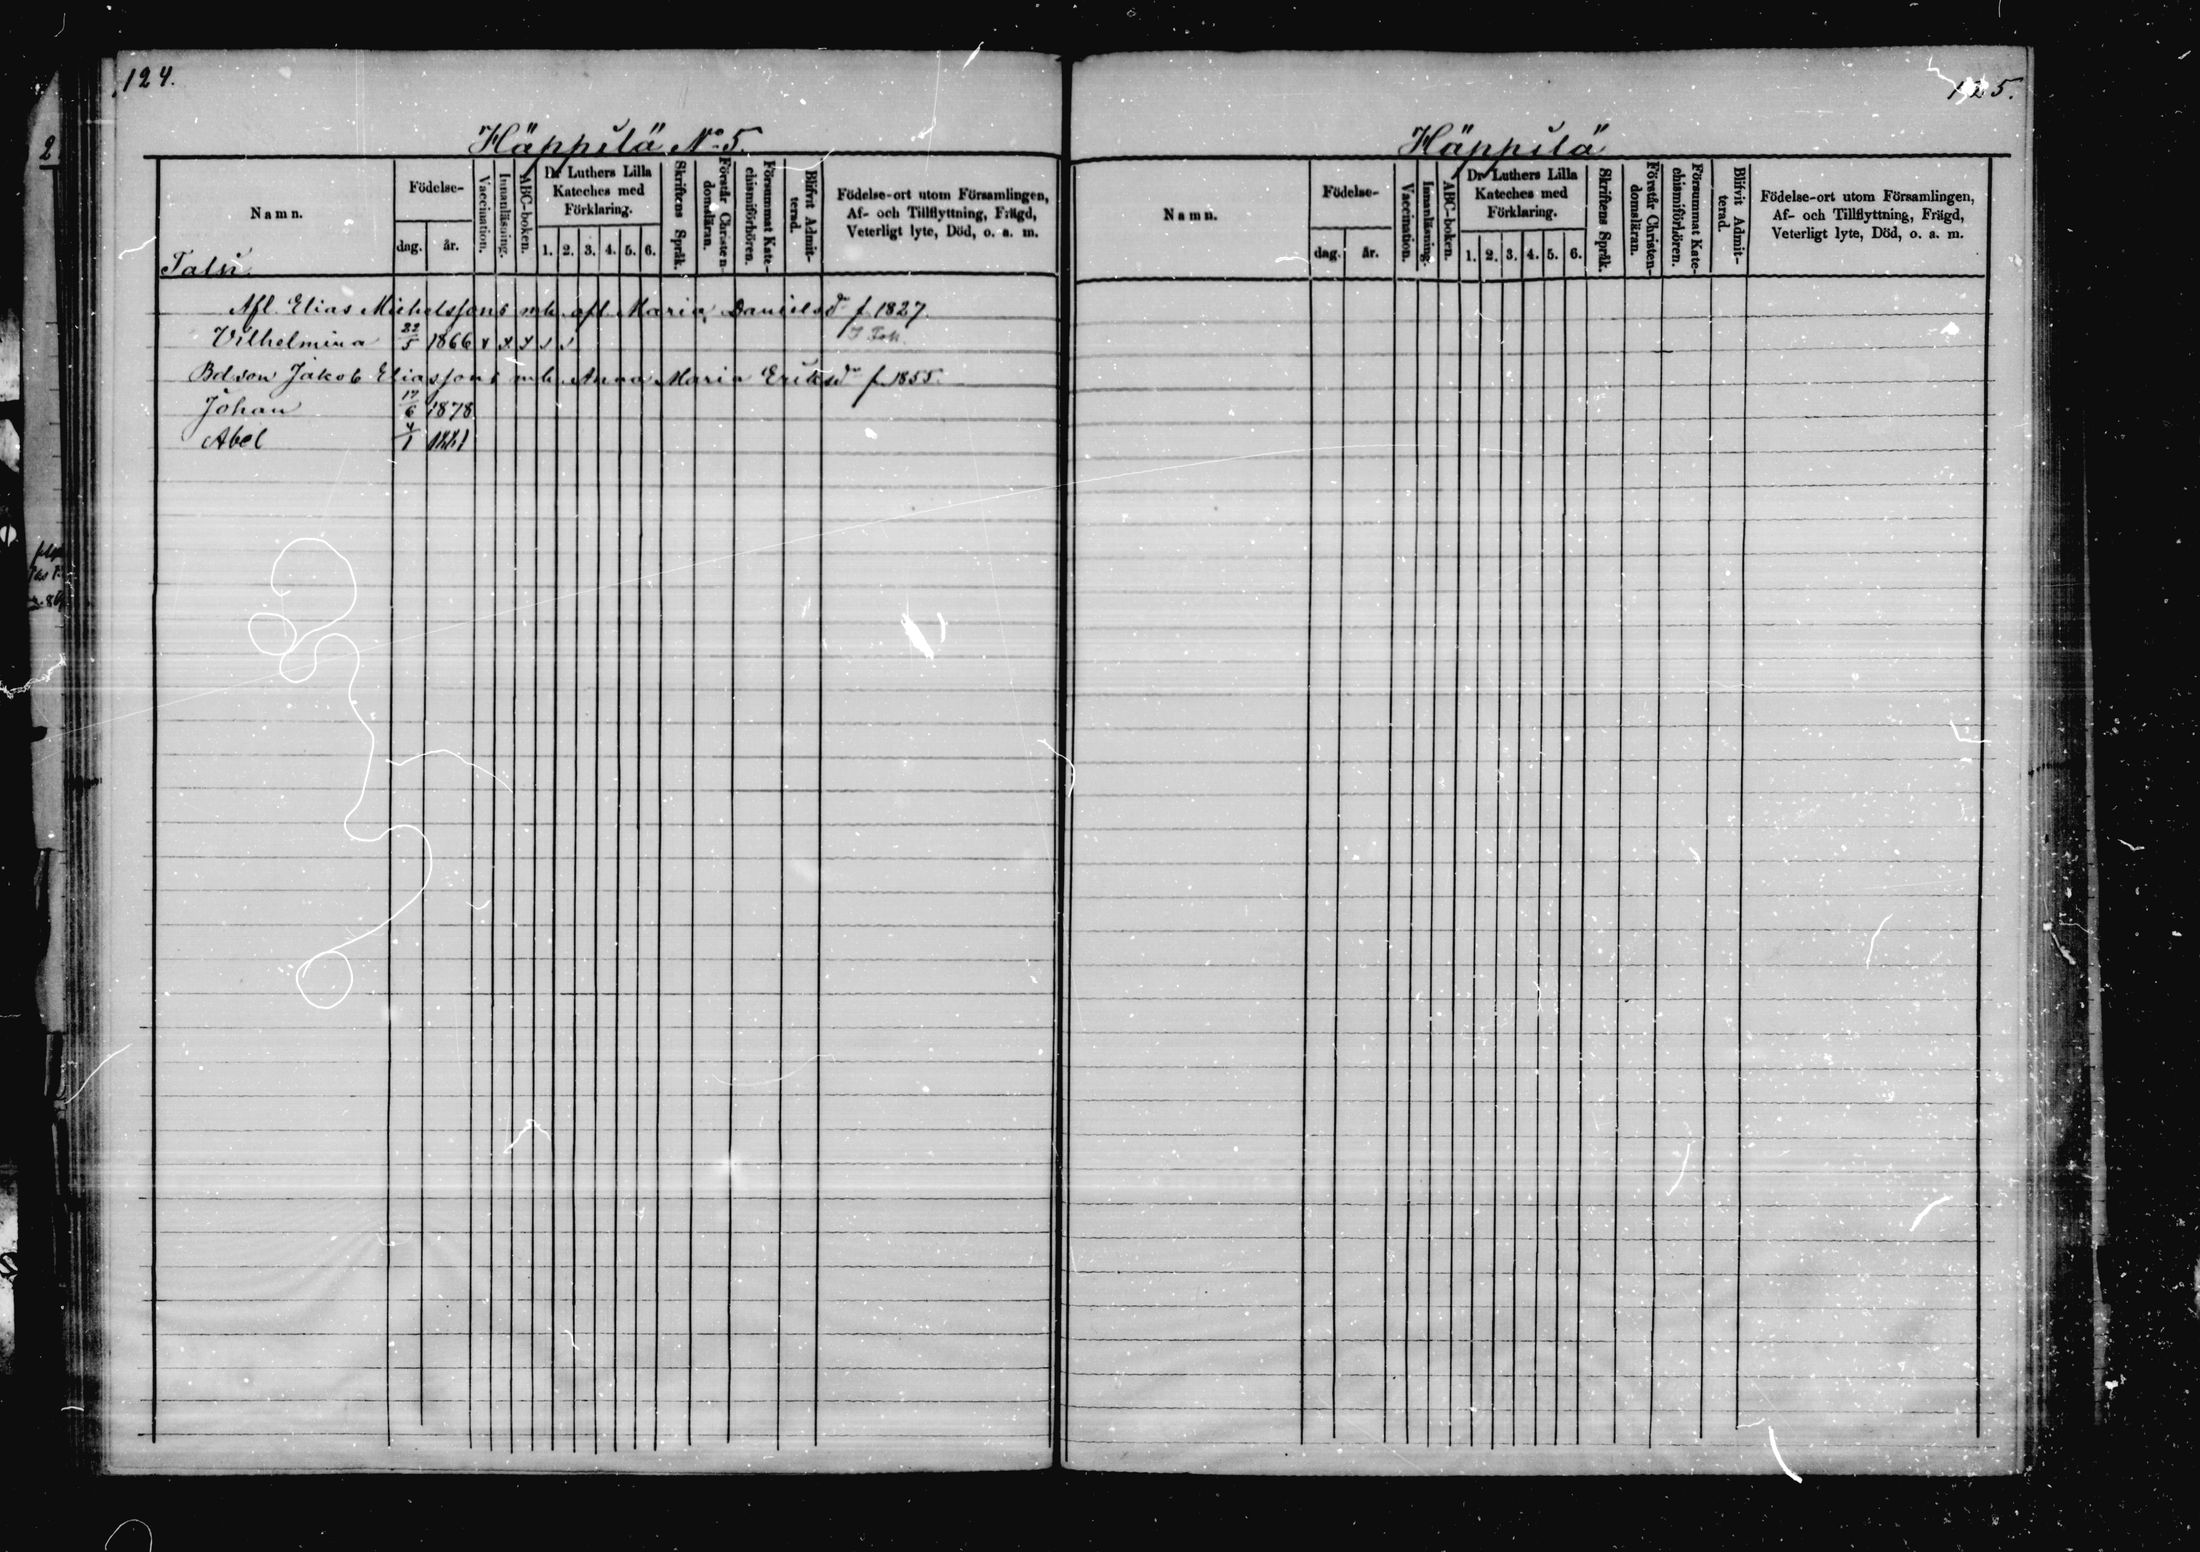 124.
Häppilä No 5.
Namn.
Födelse-
dag. år.
Vaccination.
Innanläsning.
ABC-boken.
Dr Luthers Lilla
Kateches med
Förklaring.
1. 2. 3. 4. 5. 6.
Skriftens Språk.
Förstår Christen-
domsläran.
Försummat Kate-
chismiförhören.
Blifvit Admit-
terad.
Födelse-ort utom Församlingen,
Af- och Tillflyttning, Frägd,
Veterligt lyte, Död, o. a. m.
Talsi.
Afl. Elias Michelssons m h. afl. Maria Danielsdr f. 1827.
Vilhelmina 22/5 1866 x x x
Bdson Jakob Eliassons m h. Anna Maria Eriksdr f. 1855.
Johan 17/6 1878
Abel 4/1 1881
125.
Häppilä
Namn.
Födelse-
dag. år.
Vaccination.
Innanläsning.
ABC-boken.
Dr Luthers Lilla
Kateches med
Förklaring.
1. 2. 3. 4. 5. 6.
Skriftens Språk.
Förstår Christen-
domsläran.
Försummat Kate-
chismiförhören.
Blifvit Admit-
terad.
Födelse-ort utom Församlingen,
Af- och Tillflyttning, Frägd,
Veterligt lyte, Död, o. a. m.